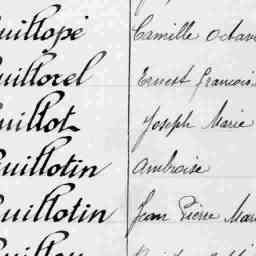 uillopé Camille Octave
uillorel Ernest François
uillot Joseph Marie
uillotin Ambroise
uillotin Jean Pierre Mar